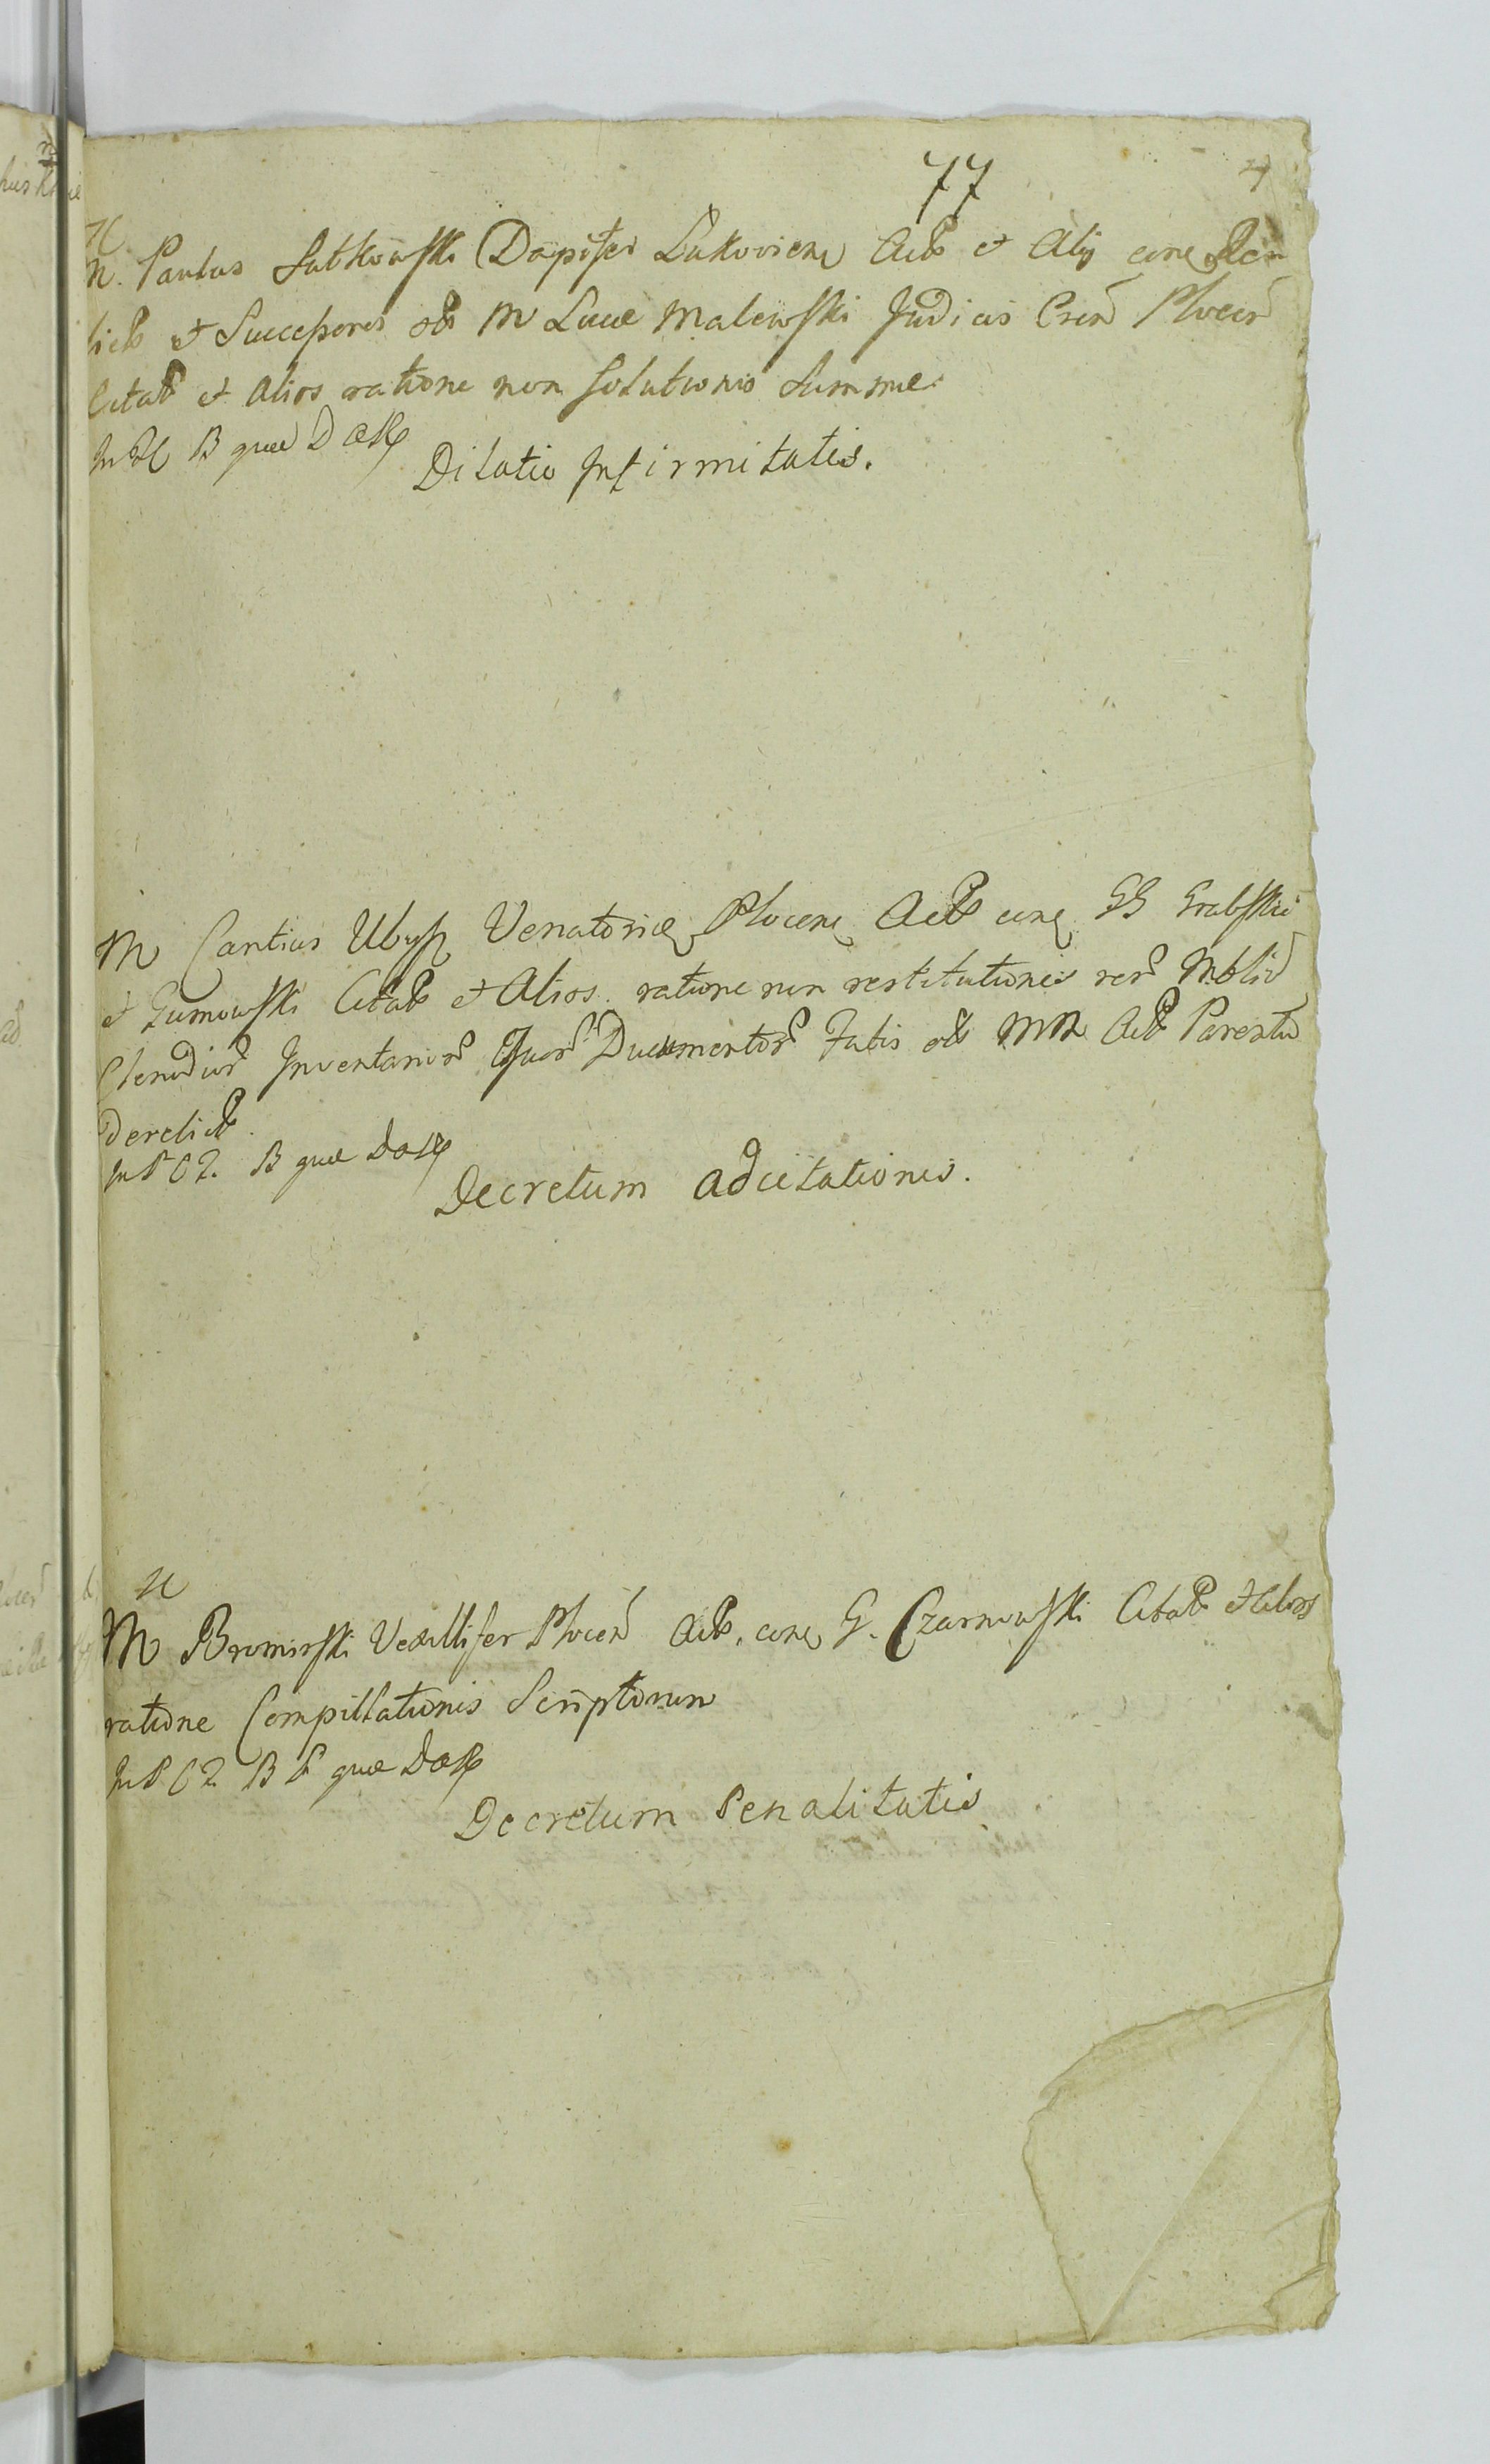 77
M. Paulus Sutkowski Dapifer Lukoviens Actt et Alij cone Rem
lictt et Successores ott M Lucæ Malewski Judicis Cren Plocen
Citatt et Alios ratione non Solutionis Summæ
B quæ D
Dilatio Infirmitatis.
M Cantius Ubysz Venatorice Plocens Actt cone GG Grabski
et Gumowski Citatt et Alios ratione non restitutionis rer Mblis
Clenodior Inventarior Documentor Fatis ott MM Actt Parentu
Derelictt.
B quæ
Decretum adcitationis.
M Bromirski Vexillifer Plocen Actt. cone G. Czarnowski Citatt et Alios
ratione Compillationis Scriptorum
B quæ
Decretum Penalitatis